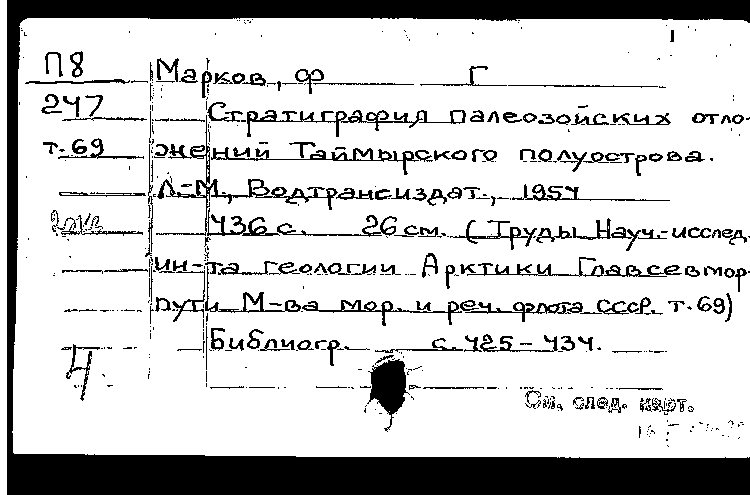 П8 Марков, Ф Г
247 Стратиграфия палеозойских отло-
т.69 жений Таймырского полуострова.
Л.-М., Водтрансиздат., 1954
436 с. 26 см. (Труды Науч.-исслед.
ин-та геологии Арктики Главсевмор-
пути М-ва мор. и реч. флота СССР. т.69)
Библиогр. с. 425-434.
4.
См. след. карт.